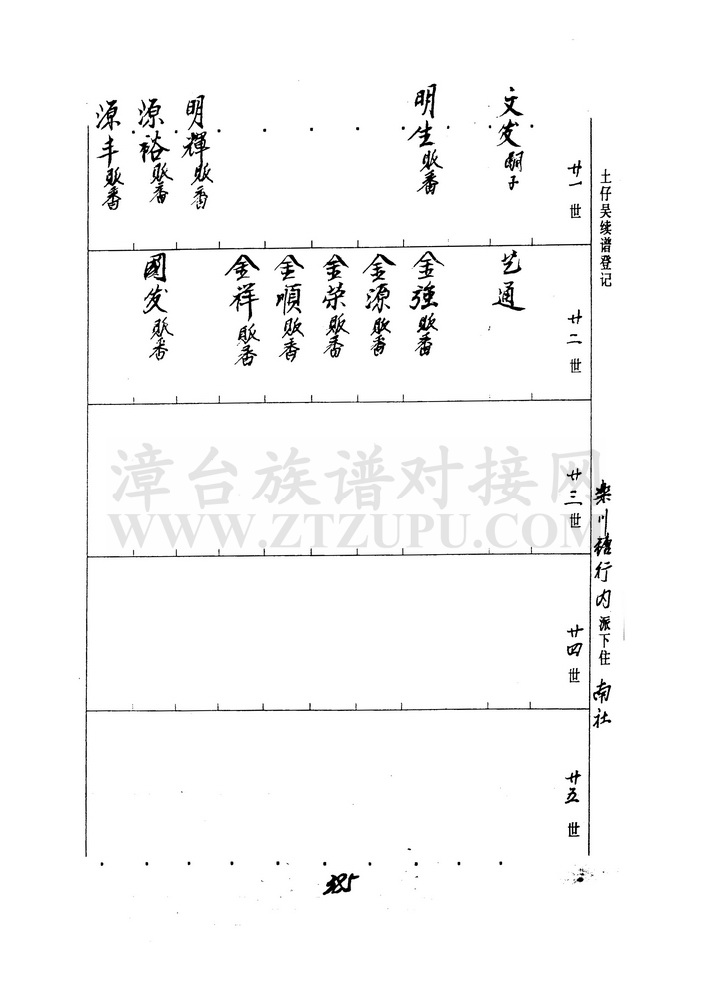 土仔吴续谱登记
栾川 行内派下住 南社
廿一世
文发嗣子
明生贩番
明輝贩番
源裕贩番
源丰贩番
廿二世
艺通
金强贩番
金源贩番
金荣贩番
金順贩番
金祥贩番
國发贩番
廿三世
廿四世
廿五世
385
漳台族谱对接网
WWW.ZTZUPU.COM